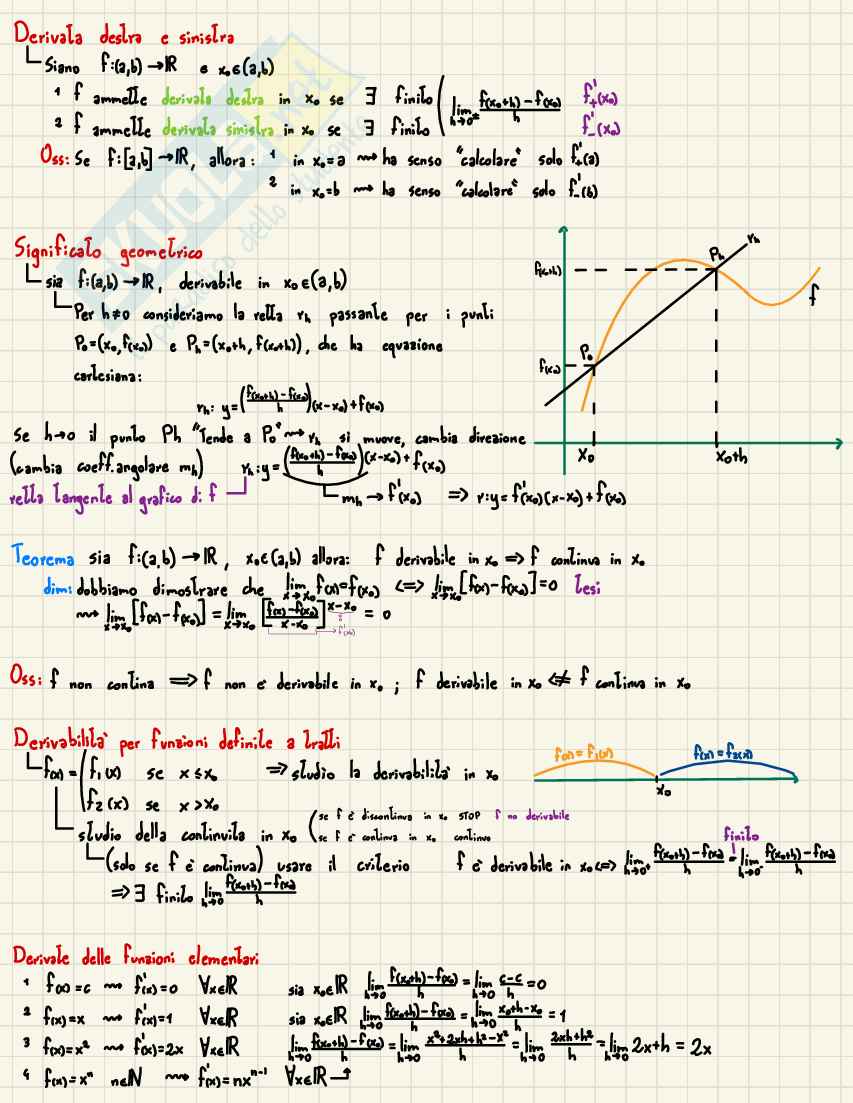 Derivata destra e sinistra
Siano f:(a,b)→ℝ e x₀∈(a,b)
1 f ammette derivata destra in x₀ se ∃ finito
2 f ammette derivata sinistra in x₀ se ∃ finito
lim h→0± (f(x₀+h)-f(x₀))/h f'₊(x₀) f'₋(x₀)
Oss: Se f:[a,b]→ℝ, allora: 1 in x₀=a ⇝ ha senso "calcolare" solo f'₊(a)
2 in x₀=b ⇝ ha senso "calcolare" solo f'₋(b)
Significato geometrico
sia f:(a,b)→ℝ, derivabile in x₀∈(a,b)
Per h≠0 consideriamo la retta rₕ passante per i punti
P₀=(x₀,f(x₀)) e Pₕ=(x₀+h, f(x₀+h)), che ha equazione
cartesiana:
rₕ: y=((f(x₀+h)-f(x₀))/h)(x-x₀)+f(x₀)
f(x₀+h) Pₕ rₕ
f
f(x₀) P₀
x₀ x₀+h
Se h→0 il punto Ph "Tende a P₀" ⇝ rₕ si muove, cambia direzione
(cambia coeff.angolare mₕ) rₕ: y=((f(x₀+h)-f(x₀))/h)(x-x₀)+f(x₀)
retta tangente al grafico di f mₕ→f'(x₀) ⇒ r:y=f'(x₀)(x-x₀)+f(x₀)
Teorema sia f:(a,b)→ℝ, x₀∈(a,b) allora: f derivabile in x₀ ⇒ f continua in x₀
dim: dobbiamo dimostrare che lim x→x₀ f(x)=f(x₀) ⇔ lim x→x₀ [f(x)-f(x₀)]=0 Tesi
⇝ lim x→x₀ [f(x)-f(x₀)] = lim x→x₀ [(f(x)-f(x₀))/(x-x₀)] x-x₀ = 0
→f'(x₀)
Oss: f non contina ⇒ f non è derivabile in x₀ ; f derivabile in x₀ ⇍ f continua in x₀
Derivabilità per funzioni definite a tratti
f(x)= (f₁(x) se x≤x₀ ⇒ studio la derivabilità in x₀
f₂(x) se x>x₀
f(x)=f₁(x) f(x)=f₂(x)
x₀
studio della continuita in x₀ (se f è discontinua in x₀ STOP f no derivabile
se f è continua in x₀ continuo
(solo se f è continua) usare il criterio f è derivabile in x₀ ⇔ lim h→0⁺ (f(x₀+h)-f(x₀))/h = lim h→0⁻ (f(x₀+h)-f(x₀))/h
finito
⇒ ∃ finito lim h→0 (f(x₀+h)-f(x₀))/h
Derivate delle funzioni elementari
1 f(x)=c ⇝ f'(x)=0 ∀x∈ℝ sia x₀∈ℝ lim h→0 (f(x₀+h)-f(x₀))/h = lim h→0 (c-c)/h = 0
2 f(x)=x ⇝ f'(x)=1 ∀x∈ℝ sia x₀∈ℝ lim h→0 (f(x₀+h)-f(x₀))/h = lim h→0 (x₀+h-x₀)/h = 1
3 f(x)=x² ⇝ f'(x)=2x ∀x∈ℝ lim h→0 (f(x₀+h)-f(x₀))/h = lim h→0 (x²+2xh+h²-x²)/h = lim h→0 (2xh+h²)/h = lim h→0 2x+h = 2x
4 f(x)=xⁿ n∈ℕ ⇝ f'(x)=nxⁿ⁻¹ ∀x∈ℝ